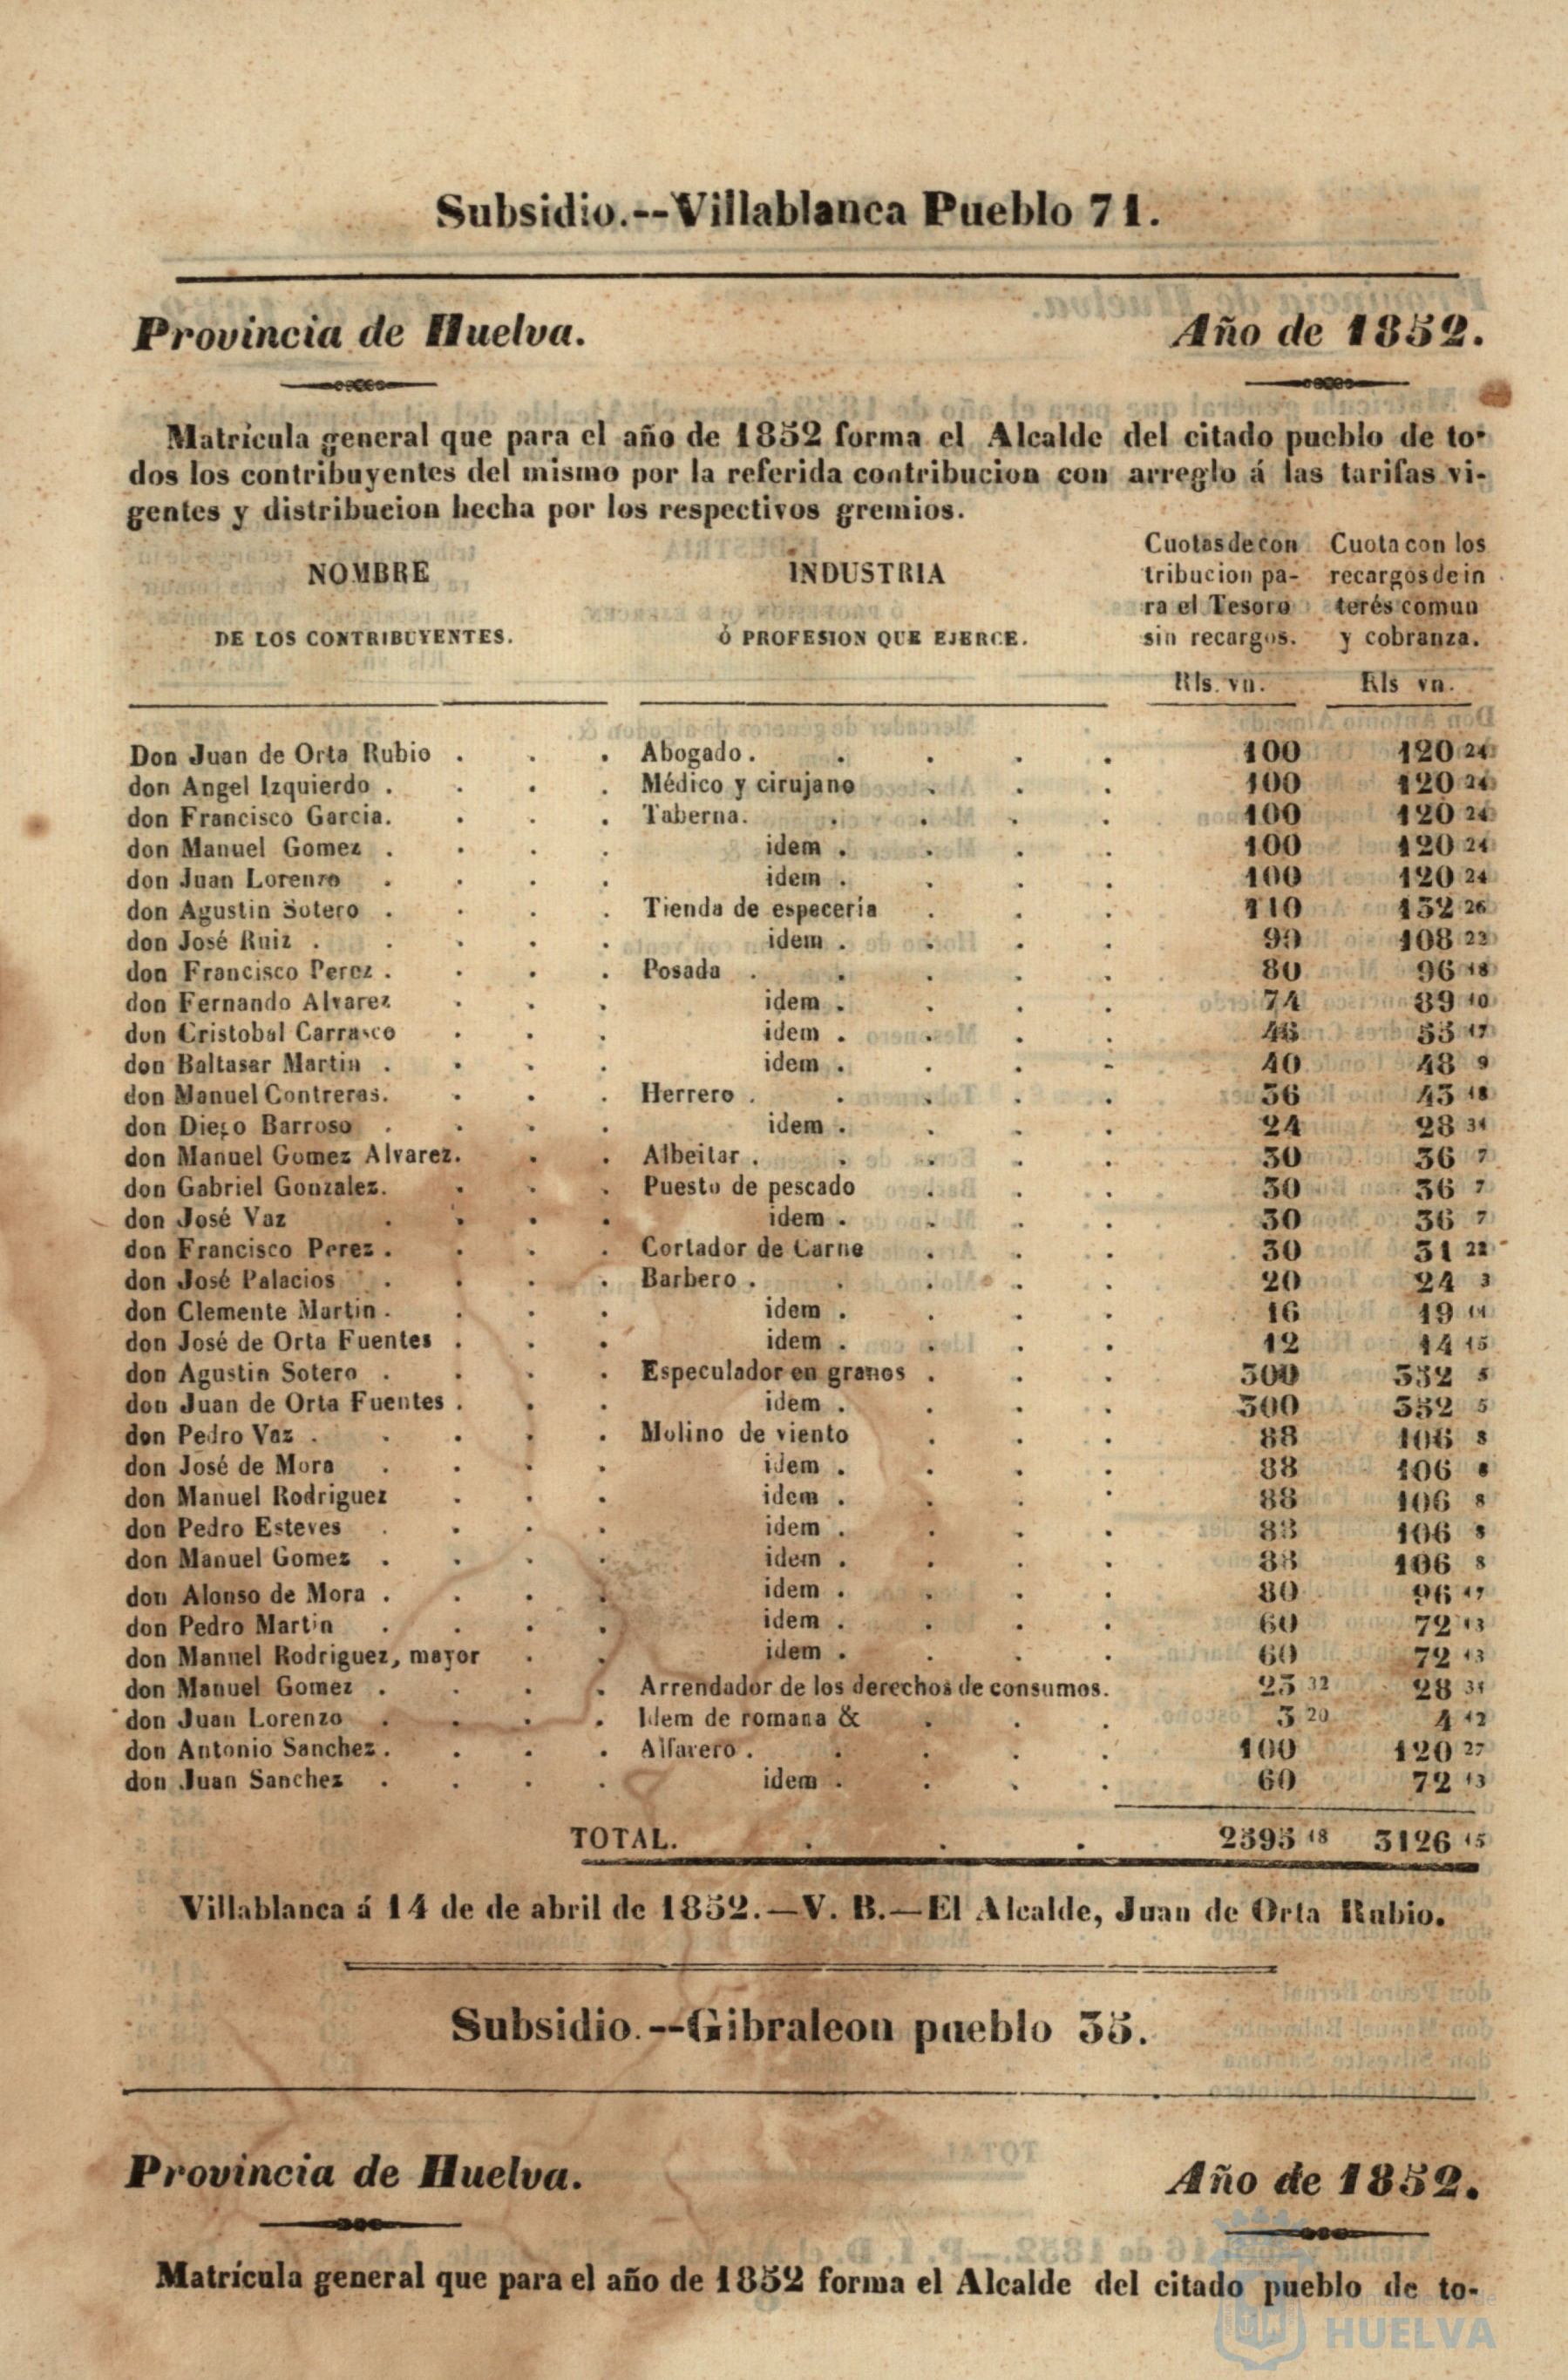 Subsidio.--Villablanca Pueblo 71.
Provincia de Huelva. Año de 1852.
Matrícula general que para el año de 1852 forma el Alcalde del citado pueblo de to-
dos los contribuyentes del mismo por la referida contribucion con arreglo á las tarifas vi-
gentes y distribucion hecha por los respectivos gremios.
NOMBRE
DE LOS CONTRIBUYENTES.
INDUSTRIA
Ó PROFESION QUE EJERCE.
Cuotas de con
tribucion pa-
ra el Tesoro
sin recargos.
Rls. vn.
Cuota con los
recargos de in
terés comun
y cobranza.
Rls vn.
Don Juan de Orta Rubio . . . Abogado. . . . . 100 120 24
don Angel Izquierdo . . . . Médico y cirujano . . . 100 120 24
don Francisco Garcia. . . . Taberna. . . . . 100 120 24
don Manuel Gomez . . . . idem . . . . 100 120 24
don Juan Lorenzo . . . . idem . . . . 100 120 24
don Agustin Sotero . . . . Tienda de especeria . . . 110 132 26
don José Ruiz . . . . . idem . . . . 90 108 22
don Francisco Perez . . . . Posada . . . . . 80 96 18
don Fernando Alvarez . . . idem . . . . 74 89 10
don Cristobal Carrasco . . . idem . . . . 53 17
don Baltasar Martin . . . . idem . . . . 40 48 9
don Manuel Contreras. . . . Herrero . . . . . 36 43 18
don Diego Barroso . . . . idem . . . . 24 28 31
don Manuel Gomez Alvarez. . . Albeitar . . . . . 30 36 7
don Gabriel Gonzalez. . . . Puesto de pescado . . . 30 36 7
don José Vaz . . . . idem . . . . 30 36 7
don Francisco Perez . . . . Cortador de Carne . . . 30 31 22
don José Palacios . . . . Barbero . . . . . 20 24 3
don Clemente Martin . . . . idem . . . . 16 19
don José de Orta Fuentes . . . idem . . . . 12 14 15
don Agustin Sotero . . . . Especulador en granos . . . 300 332 5
don Juan de Orta Fuentes . . . idem . . . . 300 332 5
don Pedro Vaz . . . . . Molino de viento . . . 88 106 8
don José de Mora . . . . idem . . . . 88 106 8
don Manuel Rodriguez . . . idem . . . . 88 106 8
don Pedro Esteves . . . . idem . . . . 88 106 8
don Manuel Gomez . . . . idem . . . . 88 106 8
don Alonso de Mora . . . . idem . . . . 80 96 17
don Pedro Martin . . . . idem . . . . 60 72 13
don Manuel Rodriguez, mayor . . idem . . . . 60 72 13
don Manuel Gomez . . . . Arrendador de los derechos de consumos. 23 32 28 31
don Juan Lorenzo . . . . Idem de romana & . . . 3 20 4 12
don Antonio Sanchez . . . . Alfarero . . . . . 100 120 27
don Juan Sanchez . . . . idem . . . . 60 72 13
TOTAL. . . . 2593 18 3126 15
Villablanca á 14 de de abril de 1852.—V. B.—El Alcalde, Juan de Orta Rubio.
Subsidio.--Gibraleon pueblo 35.
Provincia de Huelva. Año de 1852.
Matrícula general que para el año de 1852 forma el Alcalde del citado pueblo de to-
HUELVA